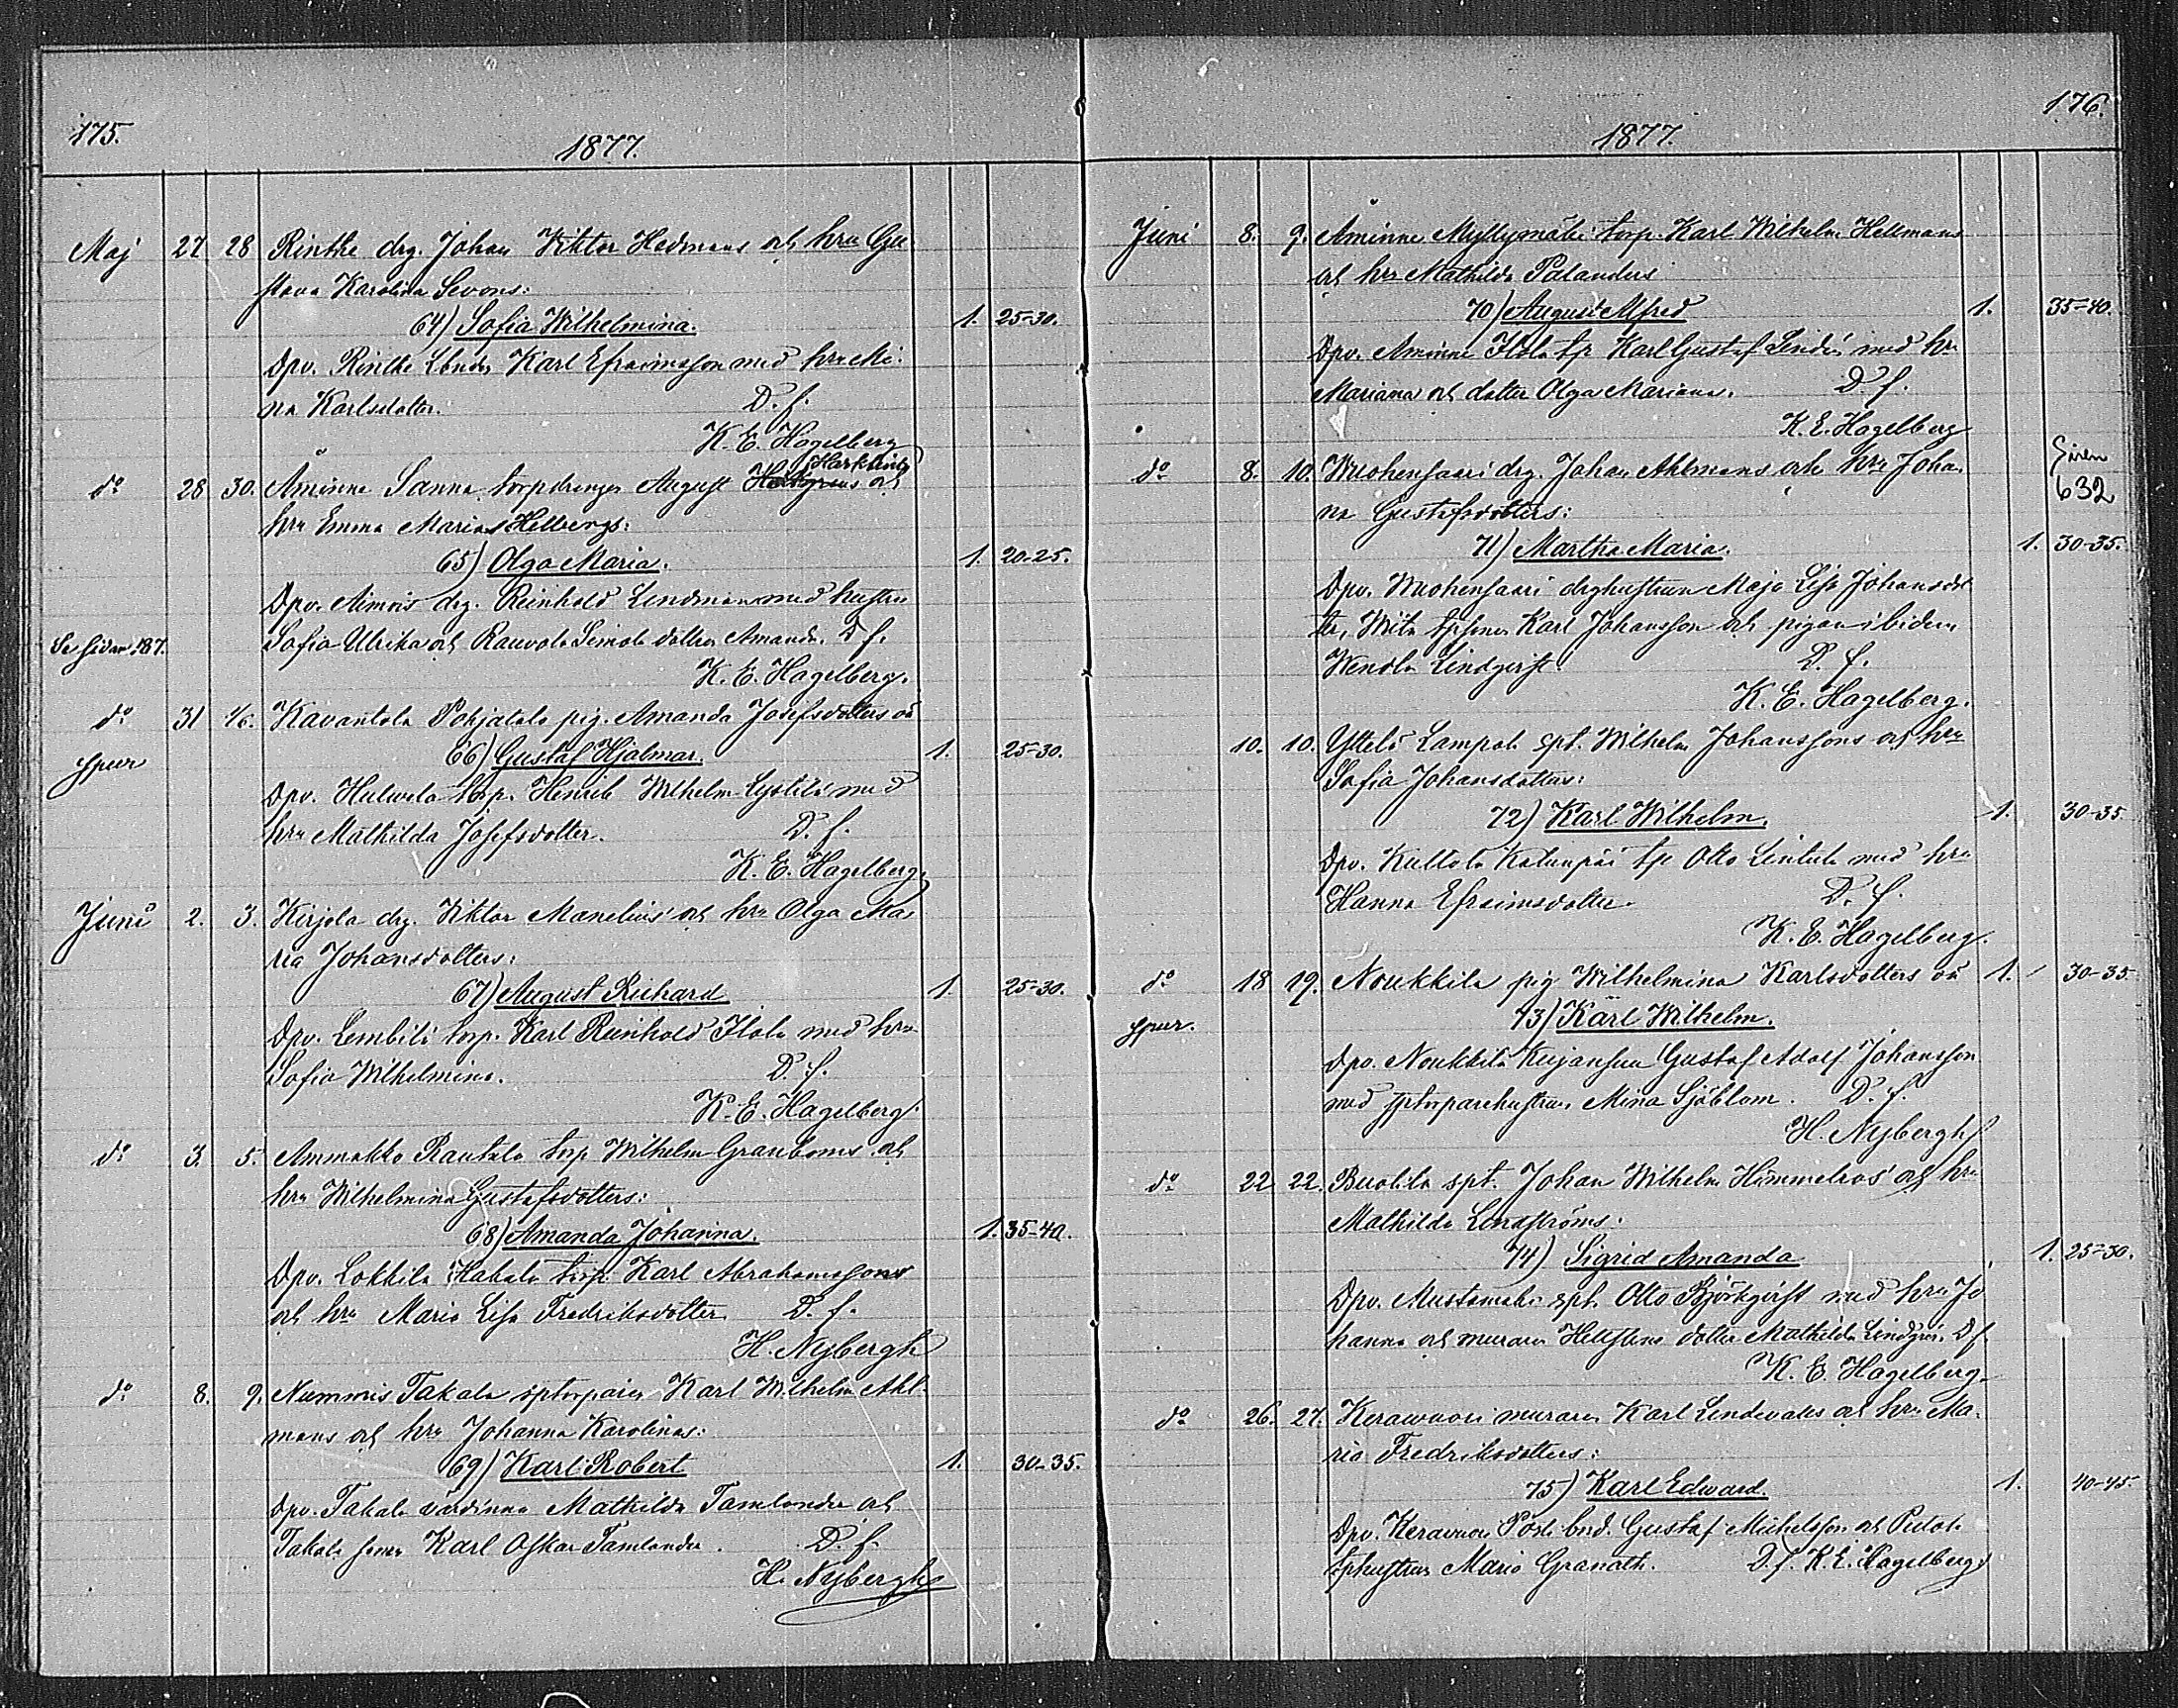 175.
1877.
Maj 27 28 Rinthe drg. Johan Viktor Hedmans och hru Gu-
stava Karolina Sevons:
64) Sofia Wilhelmina. 1. 25-30.
Dpv. Rinthe Karl Efraimsson med hru Mi-
na Karlsdotter. D. f.
K. E. Hagelberg
Harklin
do 28 30. Åminne Sanna torpdrengen August och
hru Emma Maria Hellbergs:
65) Olga Maria. 1. 20-25.
Dpv. drg. Reinhold Lindman med hustru
Sofia Ulrika och dotter Amanda. D. f.
Se sidan 187.
K. E. Hagelberg.
do 31 1/6. Kavantola Pohjatalo pig. Amanda Josefsdotters oä
spur 66) Gustaf Hjalmar. 1. 25-30.
Dpv. torp. Henrik Wilhelm med
hru Mathilda Josefsdotter. D. f.
K. E. Hagelberg.
Juni 2. 3. Kirjola drg. Viktor Manelius' och hru Olga Ma-
ria Johansdotters:
67) August Richard 1. 25-30.
Dpv. torp. Karl Reinhold Ilola med hru
Sofia Wilhelmina. D. f.
K. E. Hagelberg.
do 3. 5. Ammakko Rautalo torp Wilhelm Granboms och
hru Wilhelmina Gustafsdotters:
68) Amanda Johanna. 1. 35-40.
Dpv. Lokkila Hakala torp. Karl Abrahamssons
och hru Maria Lisa Fredriksdotter D. f.
H. Nybergh
do 8. 9. Nummis Takala sptorparen Karl Wilhelm Ahl-
mans och hru Johanna Karolinas:
69) Karl Robert 1. 30-35.
Dpv. Takala värdinna Mathilda Tamlander och
Takala sonen Karl Oskar Tamlander. D. f.
H. Nybergh
176.
1877.
Juni 8. 9. Åminne Myllymäki torp. Karl Wilhelm Hellmans
och hru Mathilda Palanders
70) August Alfred 1. 35-40.
Dpv. Åminne Ilola tp Karl Gustaf Lindé med hr
Mariana och dotter Olga Mariana. D. f.
K. E. Hagelberg
632
do 8. 10. Wuohensaari drg. Johan Ahlmans och hru Joha-
na Gustafsdotters:
71) Martha Maria. 1. 30-35.
Dpv. Wuohensaari drghustrun Maja Lisa Johansdot
ter, tpsonen Karl Johansson och pigan ibidem
Wendla Lindqvist. D. f.
K. E. Hagelberg.
10. 10. Yltelö Lampola spt. Wilhelm Johanssons och hru
Sofia Johansdotters:
72) Karl Wilhelm. 1. 30-35
Dpv. Kultola tp Otto med hru
Hanna Efraimsdotter. D. f.
K. E. Hagelberg.
do 18 19. Noukkila pig Wilhelmina Karlsdotters oä 1. 30-35
spur. 73) Karl Wilhelm.
Dpv. Noukkila Gustaf Adolf Johansson
med sptorparehustrun Mina Sjöblom. D. f.
H. Nybergh
do 22 22. spt. Johan Wilhelm Himmelros' och hru
Mathilda Lindströms:
74) Sigrid Amanda 1. 25-30.
Dpv. Mustamäki spt. Otto Björkqvist med hru Jo
hanna och muraren Hellstens dotter Mathilda D. f.
K. E. Hagelberg.
do 26. 27. Kerawuori muraren Karl Lindevalls och hru Ma-
ria Fredriksdotters:
75) Karl Edward. 1. 40-45.
Dpv. Kerawuori bnd. Gustaf Michelsson och
tphustrun Maria Granath. D. f. K. E. Hagelberg